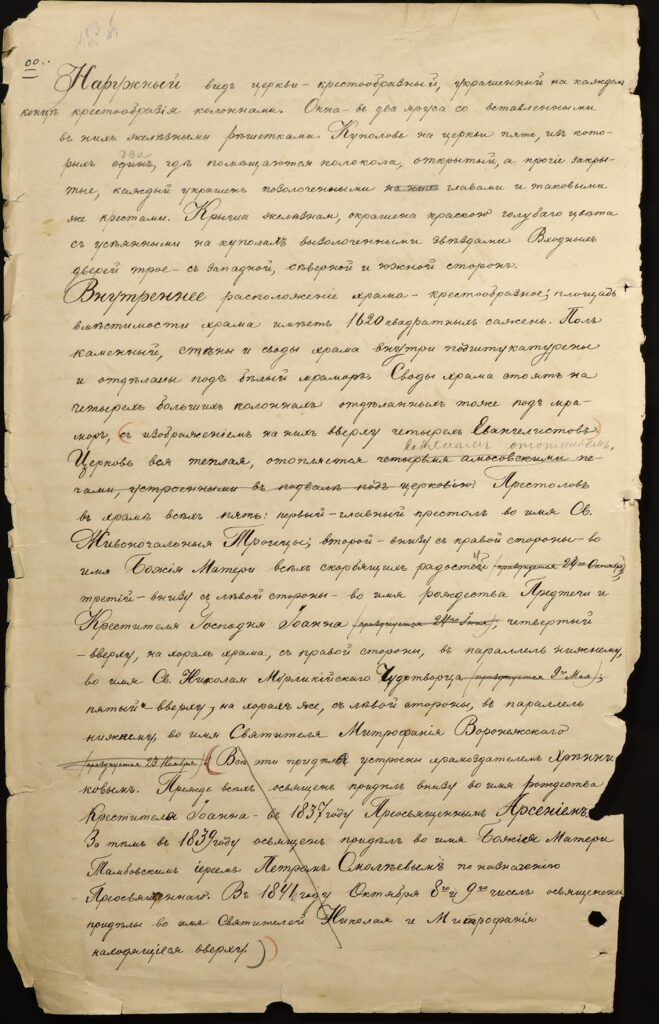 Наружный видъ церкви - крестообразный, украшенный на каждомъ
концѣ крестообразія колоннами. Окна - въ два яруса со вставленными
въ нихъ желѣзными рѣшетками. Куполовъ на церкви пять, изъ кото-
рыхъ одинъ, гдѣ помѣщаются колокола, открытый, а прочіе закры-
тые, каждый украшенъ позолоченными на нихъ главами и таковыми
же крестами. Крыша желѣзная, окрашена краскою голубаго цвѣта
съ усѣянными на куполахъ вызолоченными звѣздами. Входныхъ
дверей трое - съ западной, сѣверной и южной сторонъ.
Внутреннее расположеніе храма - крестообразное; площадь
вмѣстимости храма имѣетъ 1620 квадратныхъ саженъ. Полъ
каменный, стѣны и своды храма внутри подштукатурены
и отдѣланы подъ бѣлый мраморъ. Своды храма стоятъ на
четырехъ большихъ колоннахъ отдѣланныхъ тоже подъ мра-
моръ, (съ изображеніемъ на нихъ вверху четырехъ Евангелистовъ)
отопленіемъ.
Церковь вся теплая, отопляется четырьмя амосовскими пе-
чами, устроенными въ подвалѣ подъ церковію. Престоловъ
въ храмѣ всѣхъ пять: первый - главный престолъ во имя Св.
Живоначальныя Троицы; второй - внизу съ правой стороны - во
имя Божія Матери всѣхъ скорбящихъ радости (празднуется 24го Октября),
третій - внизу съ лѣвой стороны - во имя рождества Предтечи и
Крестителя Господня Іоанна (празднуется 24го Іюня), четвертый
- вверху, на хорахъ храма, съ правой стороны, въ параллель нижнему,
во имя Св. Николая Мѵрликійскаго Чудотворца (празднуется 9го Мая);
пятый - вверху, на хорахъ же, съ лѣвой стороны, въ параллель
нижнему, во имя Святителя Митрофанія Воронежскаго
(празднуется 23 Ноября). (Всѣ эти придѣлы устроены храмоздателемъ Хрѣнни-
ковымъ. Прежде всѣхъ освященъ придѣлъ внизу во имя рождества
Крестителя Іоанна - въ 1837 году Преосвященнымъ Арсеніемъ.
За тѣмъ въ 1839 году освященъ придѣлъ во имя Божіей Матери
Тамбовскимъ іереемъ Петромъ Смолѣевымъ по назначенію
Преосвященнаго. Въ 1841 году Октября 8го и 9го чиселъ освящены
придѣлы во имя Святителей Николая и Митрофанія
находящіеся вверху.)